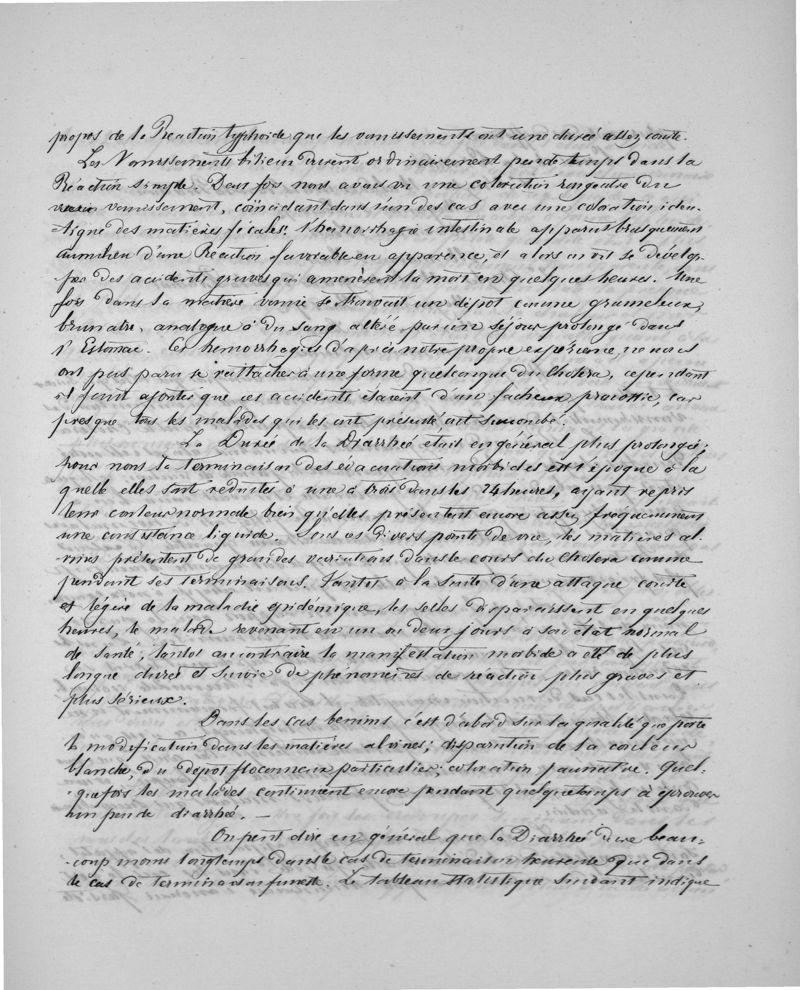 propos de la Réaction typhoide que les vomissements ont une durée assez courte.
Les Vomissements bilieux durent ordinairement peu de temps dans la
Réaction simple. Deux fois nous avons vu une coloration rougeatre du
vomissement, coïncidant dans l'un des cas avec une coloration iden-
tique des matières fécales. l'hémorrhagie intestinale apparut brusquement
au milieu d'une Réaction favorable en apparence, et alors on vit se dévelop-
per des accidents graves qui amenèrent la mort en quelques heures. Une
fois dans la matière vomie se trouvait un dépôt comme grumeleux,
brunatre, analogue à du sang altéré par un séjour prolongé dans
l'Estomac. Ces hemorrhagies d'après notre propre expérience, ne nous
ont pas paru se rattacher à une forme quelconque du Choléra, cependant
il faut ajouter que ces accidents étaient d'un facheux pronostic, car
presque tous les malades qui les ont présenté ont succombé.
La Durée de la Diarrhée était en général plus prolongée;
pour nous la terminaison des évacuations morbides est l'époque à la
quelle elles sont réduites à une à trois dans les 24 heures, ayant repris
leur couleur normale bien qu'elles présentent encore assez fréquemment
une consistance liquide. Sous ces divers points de vue, les matières al-
vines présentent de grandes variations dans le cours du Choléra comme
pendant ses terminaisons. Tantot à la suite d'une attaque courte
et légère de la maladie epidémique, les selles disparaissent en quelques
heures, le malade revenant en un ou deux jours à son état normal
de santé, tantot au contraire la manifestation morbide a été de plus
longue durée et suivie de phénomènes de réaction plus graves et
plus sérieux.
Dans les cas benins c'est d'abord sur la qualité que porte
la modification dans les matières alvines; disparution de la couleur
blanche, du dépot floconneux particulier; coloration jaunatre. Quel-
quefois les malades continuent encore pendant quelque temps à éprouver
un peu de diarrhée. —
On peut dire en général que la Diarrhée dure beau-
coup moins longtemps dans le cas de terminaison heureuse que dans
le cas de terminaison funeste. Le tableau statistique suivant indique